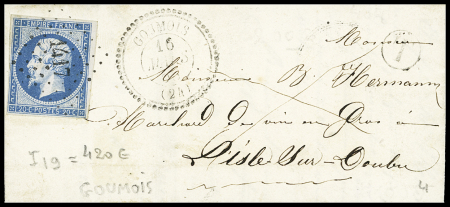 EMPIRE FRANC.
20 C. POSTES 20 C.
GOUMOIS
16
(24)
Monsieur
Monsieur B. Hermann
Marchand de vin en Gros à
L'isle-Sur-Doubs
I 19 = 420 €
GOUMOIS